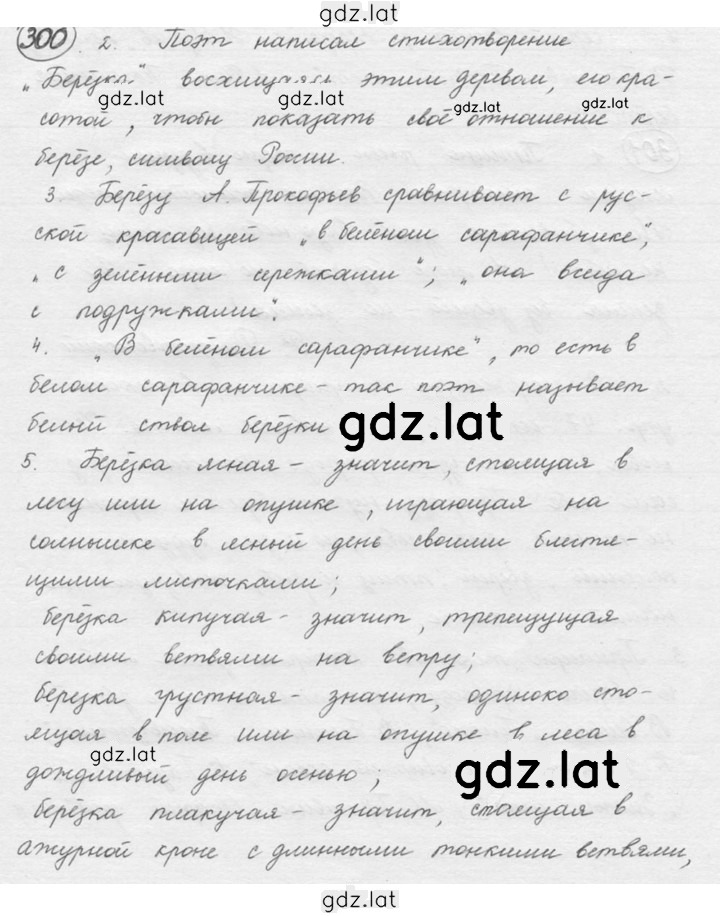 gdz.lat
300. 2. Поэт написал стихотворение
„Берёзка" восхищаясь этим деревом, его кра-
gdz.lat gdz.lat gdz.lat
сотой, чтобы показать своё отношение к
берёзе, символу России.
3. Берёзу А. Прокофьев сравнивает с рус-
ской красавицей „в белёном сарафанчике",
„с зелёными сережками"; „она всегда
с подружками".
4. „В белёном сарафанчике", то есть в
белом сарафанчике - так поэт называет
белый ствол берёзки gdz.lat
5. Берёзка ясная - значит, стоящая в
лесу или на опушке, играющая на
солнышке в ясный день своими блестя-
щими листочками;
берёзка кипучая - значит, трепещущая
своими ветвями на ветру;
березка грустная - значит, одиноко сто-
ящая в поле или на опушке в леса в
gdz.lat gdz.lat
дождливый день осенью;
берёзка плакучая - значит, стоящая в
ажурной кроне с длинными тонкими ветвями,
gdz.lat